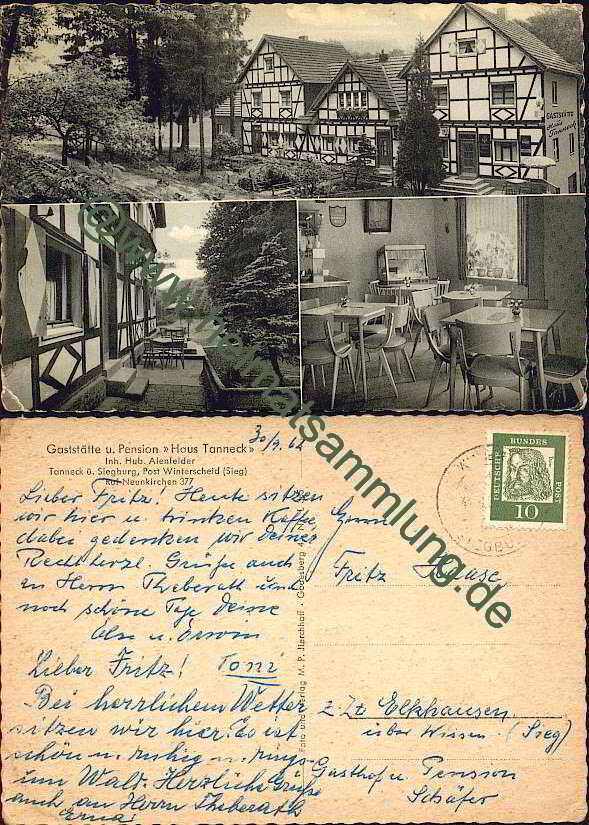 GASTSTÄTTE
Haus
Tanneck
@www.heimatsammlung.de
30/9. 62
Gaststätte u. Pension »Haus Tanneck«
Inh. Hub. Alenfelder
Tanneck ü. Siegburg, Post Winterscheid (Sieg)
Ruf Neunkirchen 377
Lieber Fritz! Heute sitzen
wir hier u. trinken Kaffe,
dabei gedenken wir Deiner
Recht herzl. Grüße auch
an Herrn Theberath und
noch schöne Tage Deine
Else u. Erwin
Lieber Fritz! Toni
Bei herrlichem Wetter
sitzen wir hier. Es ist
schön u. ruhig u. rings-
um Wald. Herzliche Grüße
auch an Herrn Theberath
Erna
Foto und Verlag M. P. · Godesberg
DEUTSCHE BUNDESPOST
10
Herrn
Fritz Hause
z. Zt Elkhausen
über Wissen (Sieg)
Gasthof u. Pension
Schäfer